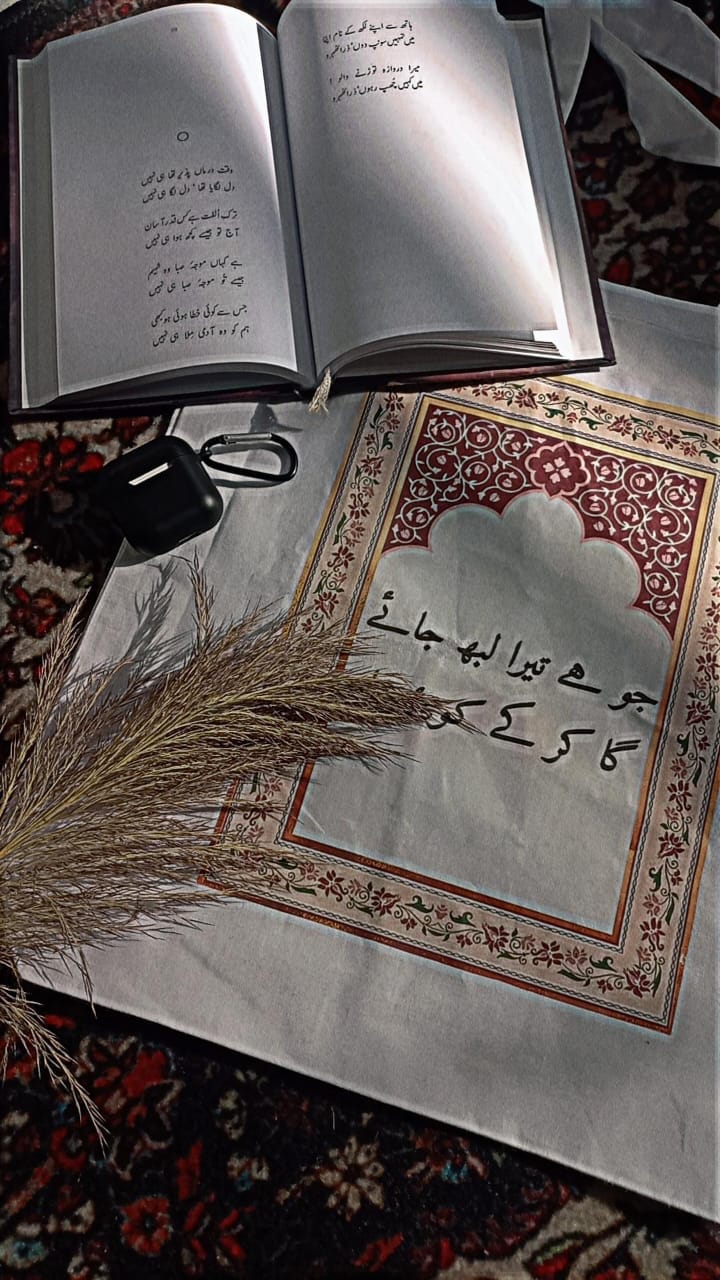 ہاتھ سے اپنے لکھ کے نام اپنا
میں تمہیں سونپ دوں' ذرا ٹھہرو
میرا دروازہ توڑنے والو !
میں کہیں چھپ رہوں' ذرا ٹھہرو
وقت درماں پذیر تھا ہی نہیں
دل لگایا تھا' دل لگا ہی نہیں
ترکِ اُلفت ہے کس قدر آسان
آج تو جیسے کچھ ہوا ہی نہیں
ہے کہاں موجۂ صبا و شمیم
جیسے تُو موجۂ صبا ہی نہیں
جس سے کوئی خطا ہوئی ہو کبھی
ہم کو وہ آدمی مِلا ہی نہیں
جو ھے تیرا لبھ جائے
گا کر کے